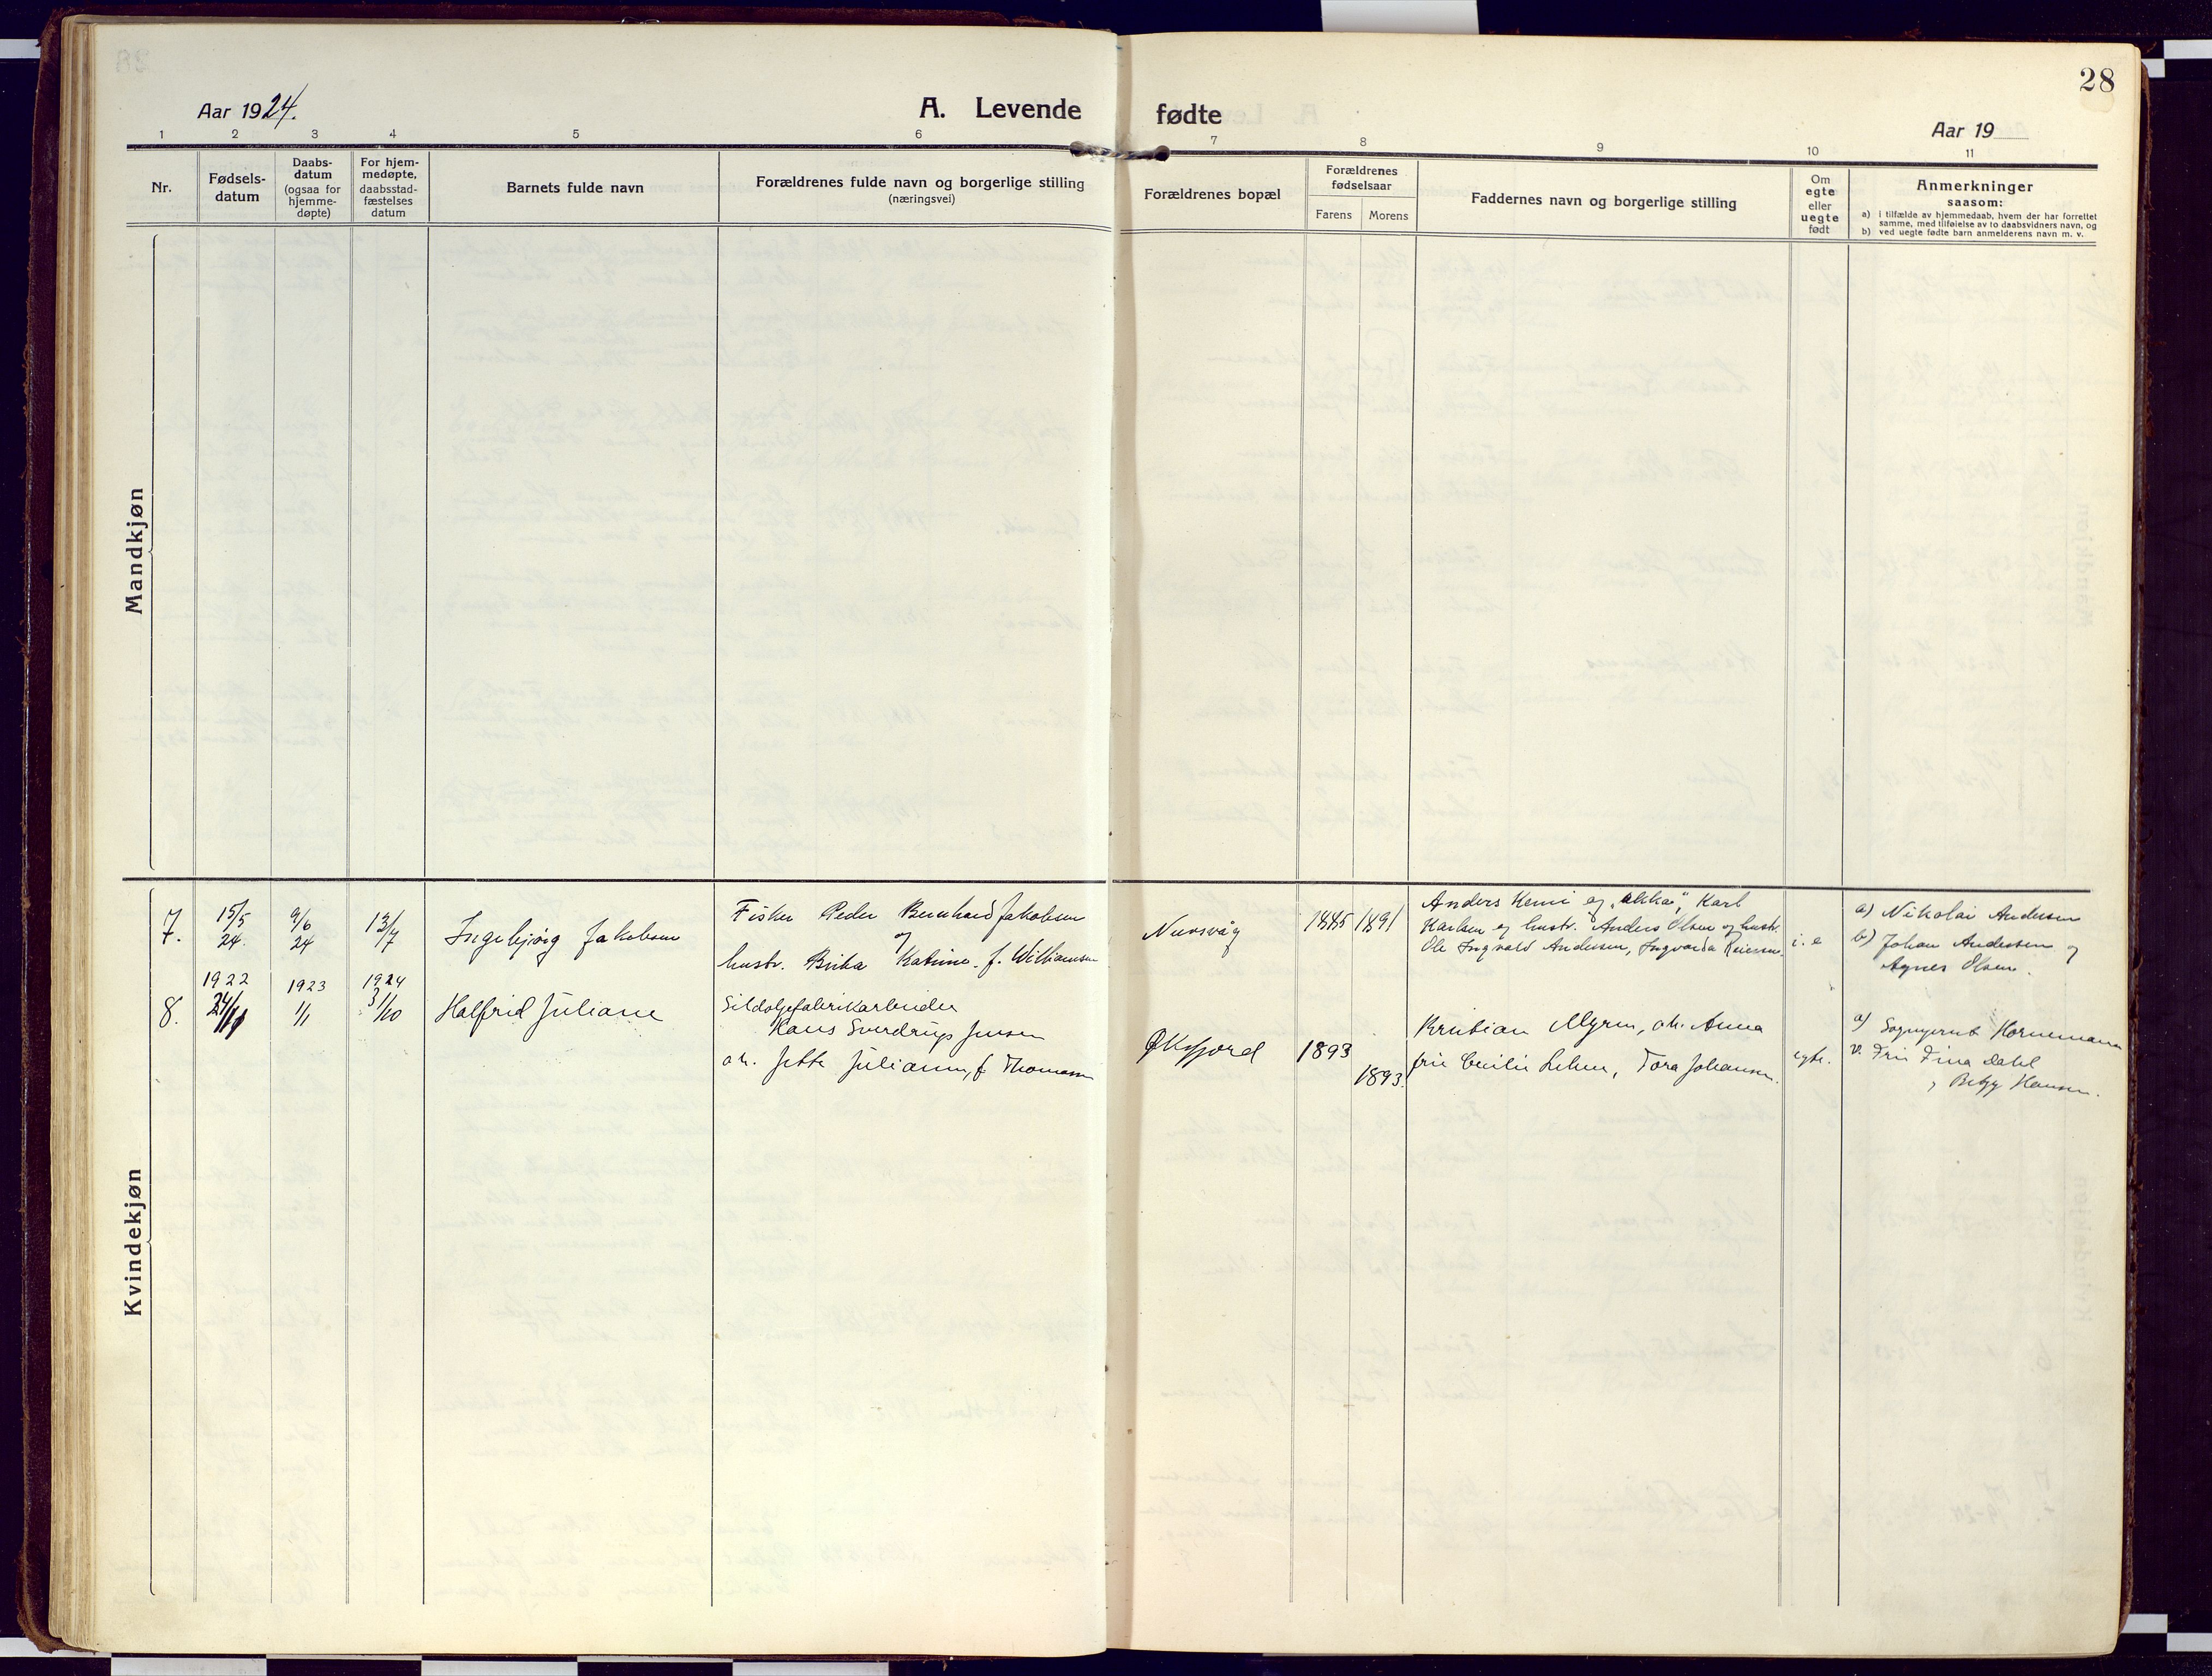 28
Aar 1924.
A. Levende fødte
Aar 19
1 2 3 4 5 6 7 8 9 10 11
Nr.
Fødsels-
datum
Daabs-
datum
(ogsaa for
hjemme-
døpte)
For hjem-
medøpte,
daabsstad-
fæstelses
datum
Barnets fulde navn
Forældrenes fulde navn og borgerlige stilling
(næringsvei)
Forældrenes bopæl
Forældrenes
fødselsaar
Farens Morens
Faddernes navn og borgerlige stilling
Om
egte
eller
uegte
født
Anmerkninger
saasom:
a) i tilfælde av hjemmedaab, hvem der har forrettet
samme, med tilføielse av to daabsvidners navn, og
b) ved uegte fødte barn anmelderens navn m. v.
Mandkjøn
Kvindekjøn
7.
15/5
24.
9/6
24
13/7
Ingebjørg Jakobsen
Fisker Peder Bernhard Jakobsen
og
hustr. Brita Katrine f. Williamsen
Nuvsvåg
1885 1891
Anders Kemi og "akka", Karl
Karlsen og hustr. Anders Olsen og hustr.
Ole Ingvald Andersen, Ingvarda
a) Nikolai Andersen
b) Johan Andersen og
Agnes Olsen.
8.
1922
24/11
1923
1/1
1924
3/10
Halfrid Juliane
Sildoljefabrikarbeider
Hans Sverdrup Jensen
og h. Jette Juliane, f. Thomassen
Øksfjord
1893
1893.
Kristian Myren, og h. Anna
frk Cecilie Lehn, Tora Johansen.
egte.
a) Sogneprest Hornemann
v. Frk Fina Dahl
" Betzy Hansen.